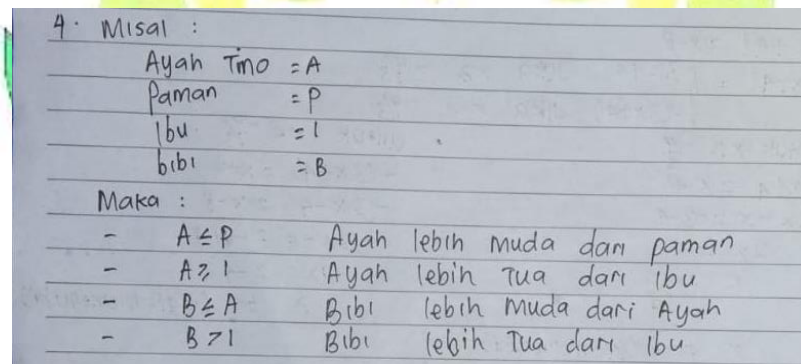 4. Misal :
Ayah Tino = A
Paman = P
Ibu = I
bibi = B
Maka :
- A ≤ P Ayah lebih muda dari paman
- A ≥ I Ayah lebih Tua dari ibu
- B ≤ A Bibi lebih muda dari Ayah
- B > I Bibi lebih Tua dari ibu